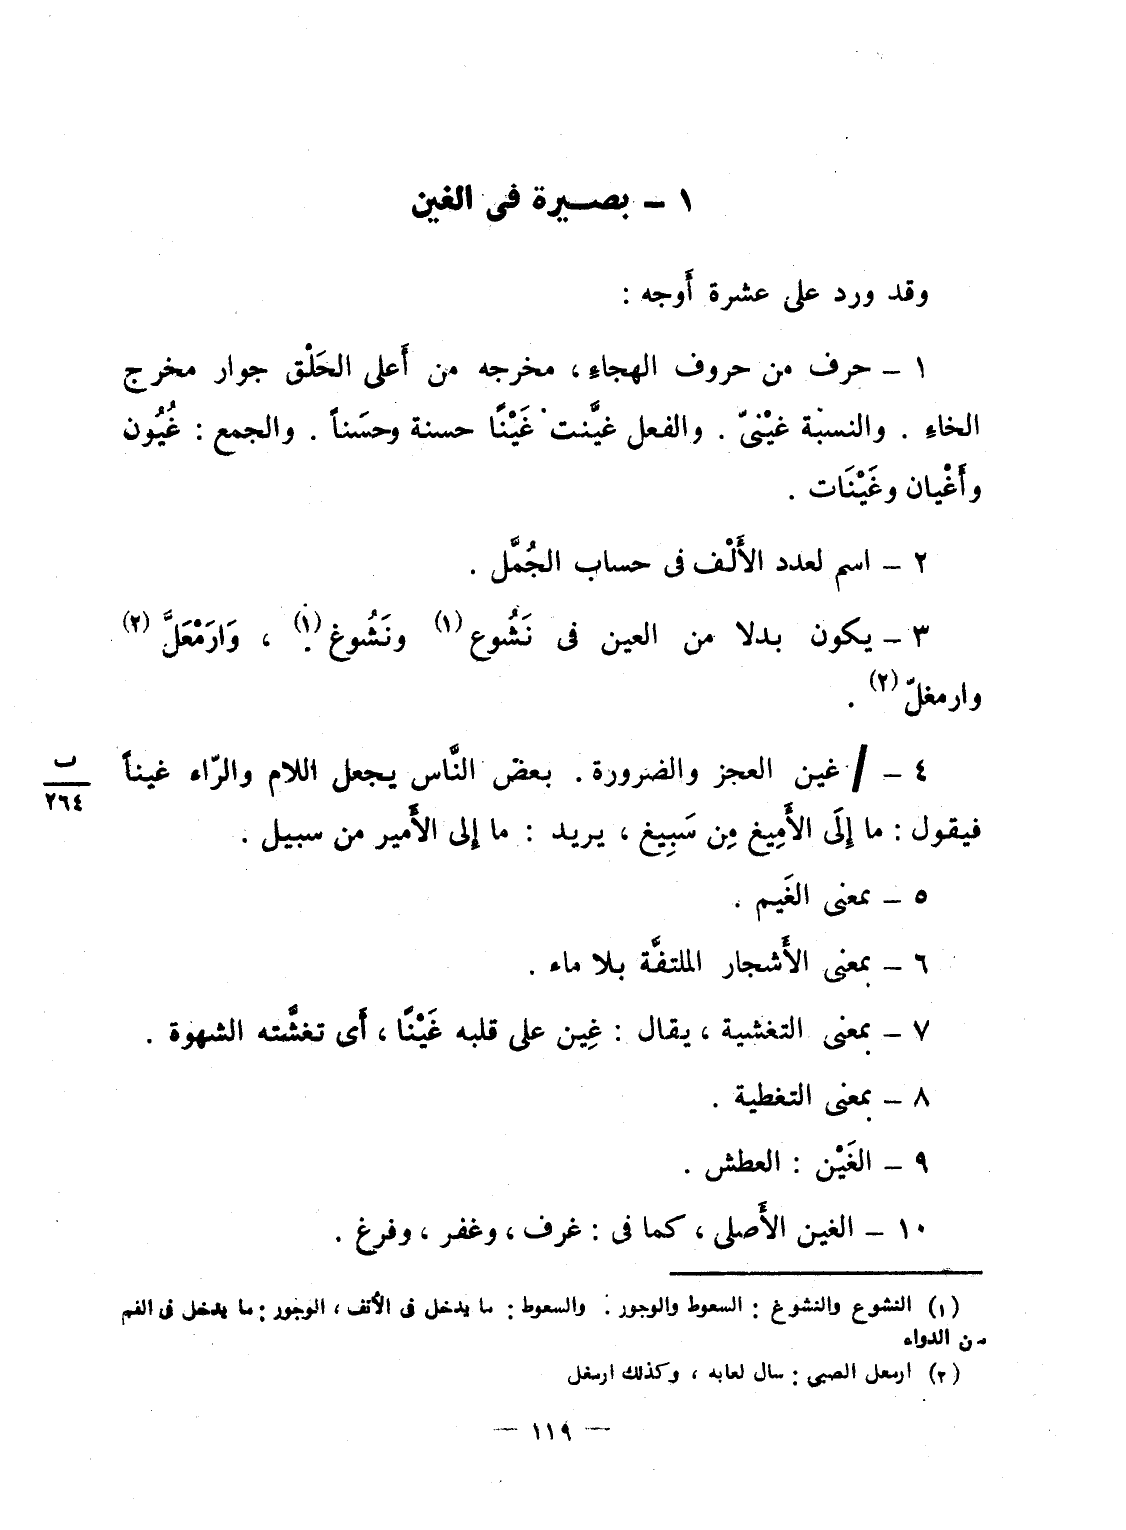 ١ – بصيرة فى الغين
وقد ورد على عشرة أَوجه :
١ – حرف من حروف الهجاءِ، مخرجه من أَعلى الحَلْق جوار مخرج
الخاءِ . والنسبة غيْنىّ . والفعل غيَّنت غَيْنًا حسنة وحسَناً . والجمع : غُيُون
وأَغْيان وغَيْنَات .
٢ – اسم لعدد الأَلْف فى حساب الجُمَّل .
٣ – يكون بدلا من العين فى نَشُوع (١) ونَشُوغ (١) ، وَارَمْعَلَّ (٢)
وارمغلّ (٢) .
٤ – / غين العجز والضرورة . بعض النَّاس يجعل اللام والرّاء غيناً
ب
٢٦٤
فيقول : ما إِلَى الأَمِيغ مِن سَبِيغ ، يريد : ما إلى الأَمير من سبيل .
٥ – بمعنى الغَيم .
٦ – بمعنى الأَشجار الملتفَّة بلا ماء .
٧ – بمعنى التغشية ، يقال : غِين على قلبه غَيْنًا ، أَى تغشَّته الشهوة .
٨ – بمعنى التغطية .
٩ – الغَيْن : العطش .
١٠ – الغين الأَصلى ، كما فى : غرف ، وغفر ، وفرغ .
(١) النشوع والنشوغ : السعوط والوجور . والسعوط : ما يدخل فى الأنف ، الوجور : ما يدخل فى الفم
من الدواء
(٢) ارمعل الصبى : سال لعابه ، وكذلك ارمغل
— ١١٩ —